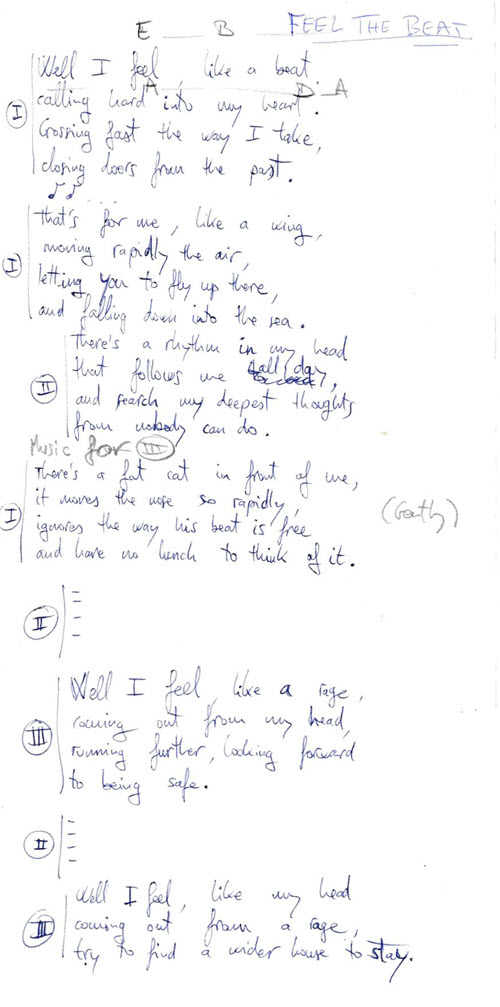 E B FEEL THE BEAT
Well I feel, like a beat
A D A
calling hard into my heart.
I
Crossing fast the way I take,
closing doors from the past.
♪ ♪ ...
that's for me, like a wing,
moving rapidly the air,
I
letting you to fly up there,
and falling down into the sea.
There's a rhythm in my head
that follows me all day,
II
and search my deepest thoughts
from nobody can do.
Music for III
There's a fat cat in front of me,
it moves the nose so rapidly,
I
ignores the way his beat is free
and have no lunch to think of it.
II
Well I feel, like a rage,
coming out from my head,
III
running further, looking forward
to being safe.
II
Well I feel, like my head
coming out from a rage,
III
try to find a wider house to stay.